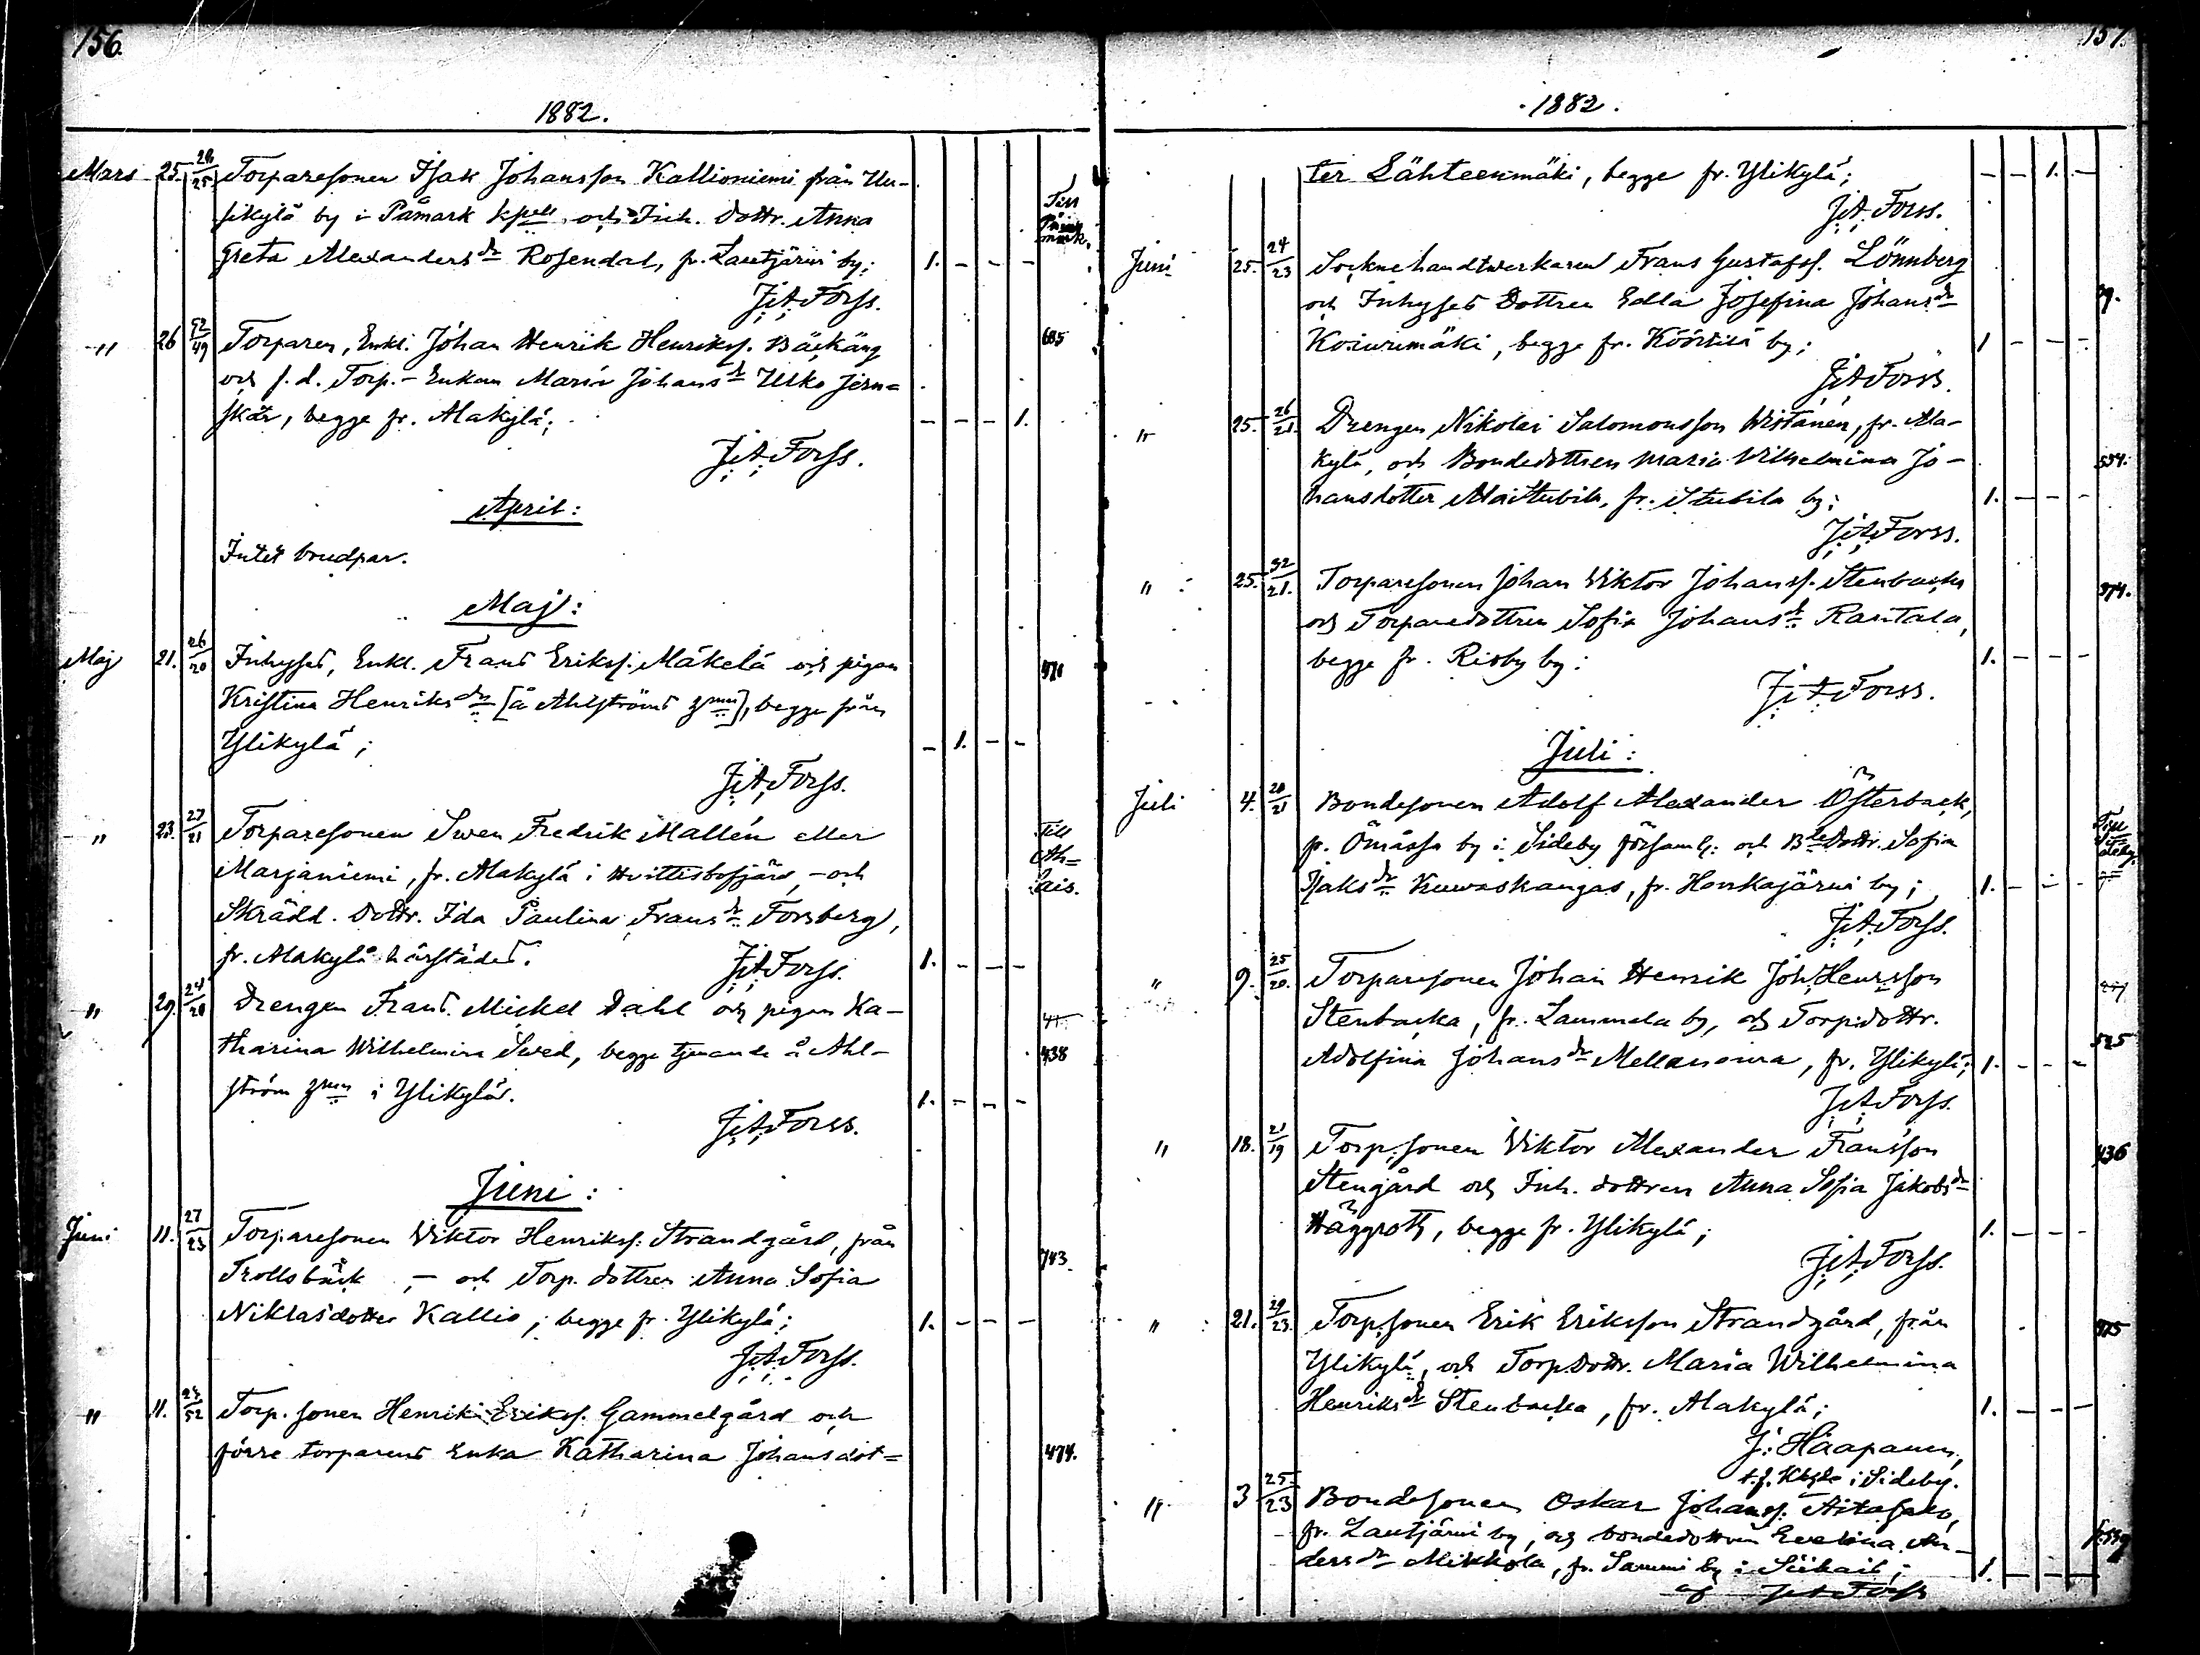 156.
1882.
Mars 25. 26/25 Torparesonen Isak Johansson Kallioniemi från Uu-
sikylä by i Påmark kpell, och Inh. dottr. Anna Till Påmark.
Greta Alexandersdr Rosendal, fr. Lautjärvi by; 1. - - -
J. A. Forss.
" 26 52/49 Torparen, Enkl. Johan Henrik Henrikss. Bäckäng 605
och f. d. Torp.-Enkan Maria Johansdr Ulko Jern-
skär, begge fr. Alakylä; - - - 1.
J. A. Forss.
April:
Intet brudpar.
Maj:
Maj 21. 26/20 Inhyses, Enkl. Frans Erikss. Mäkelä och pigan
Kristina Henriksdr [å Ahlströms gmn], begge från
Ylikylä; - 1. - -
J. A. Forss.
" 23. 27/21 Torparesonen Swen Fredrik Mallén eller Till
Marjaniemi, fr. Alakylä i Hvittisbofjärd, - och Ah=
Skrädd. dottr. Ida Paulina Fransdr Forsberg, lais.
fr. Alakylä härstädes. J. A. Forss. 1. - - -
" 29. 24/20 Drengen Frans Mickel Dahl och pigan Ka-
tharina Wilhelmina Swed, begge tjenande å Ahl- 438
ström gmn i Ylikylä. 1. - - -
J. A. Forss.
Juni:
Juni 11. 27/23 Torparesonen Viktor Henrikss. Strandgård, från
Trollsbäck, - och Torp. dottren Anna Sofia 743.
Niklasdotter Kallio, begge fr. Ylikylä; 1. - - -
J. A. Forss.
" 11. /52 Torp. sonen Henrik Erikss. Gammelgård och
förre torparens Enka Katharina Johansdot= 474.
157.
1882.
ter Lähteenmäki, begge fr. Ylikylä; - - 1. -
J. A. Forss.
Juni 25. 24/23 Socknehandtwerkaren Frans Gustafss. Lönnberg
och Inhyses Dottren Edla Josefina Johansdr 79.
Koiurimäki, begge fr. by; 1 - - -
J. A. Forss.
" 25. 26/21. Drengen Nikolai Salomonsson Wistanen, fr. Ala-
kylä, och Bondedottren Maria Wilhelmina Jo- 554.
hansdotter AlaiStubila, fr. Stubila by; 1. - - -
J. A. Forss.
" 25. 32/21. Torparesonen Johan Viktor Johanss. Stenbacka 374.
och Torparedottren Sofia Johansdr Rantala,
begge fr. Risby by; 1. - - -
J. A. Forss.
Juli:
Juli 4. /21 Bondesonen Adolf Alexander Österback,
fr. Ömåssa by i Sideby församl: och Bdedottr. Sofia Till Sideby.
Isaksdr Kuuwaskangas, fr. Honkajärvi by; 1. - - -
J. A. Forss.
" 9. 25/20. Torparesonen Johan Henrik Joh. Henrsson
Stenbacka, fr. Lammela by, och Torp. dottr. 525
Adolfina Johansdr Mellanoura, fr. Ylikylä; 1. - - -
J. A. Forss.
" 18. 21/19 Torp. sonen Viktor Alexander Fransson 436
Stengård och Inh. dottren Anna Sofia Jakobsdr
Häggroth, begge fr. Ylikylä; 1. - - -
J. A. Forss.
" 21. 29/23. Torp. sonen Erik Eriksson Strandgård, från
Ylikylä, och Torp. Dottr. Maria Wilhelmina
Henriksdr Stenbacka, fr. Alakylä; 1. - - -
J. Haapanen,
t. f. i Sideby.
" 3 25/23 Bondesonen Oskar Johanss. Aitasalo,
fr. Lautjärvi by, och bondedottren Evelina An-
dersdr Mikkola, fr. Sammi by i Siikais; 1. - - -
af J. A. Forss